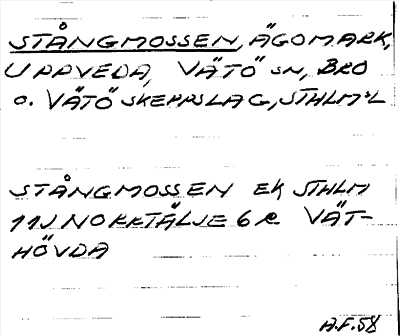 STÅNGMOSSEN, ÄGOMARK,
UPPVEDA, VÄTÖ SN, BRO
O. VÄTÖ SKEPPSLAG, STHLM:L
STÅNGMOSSEN EK STHLM
11J NORRTÄLJE 6 e VÄT-
HÖVDA
A.F.58